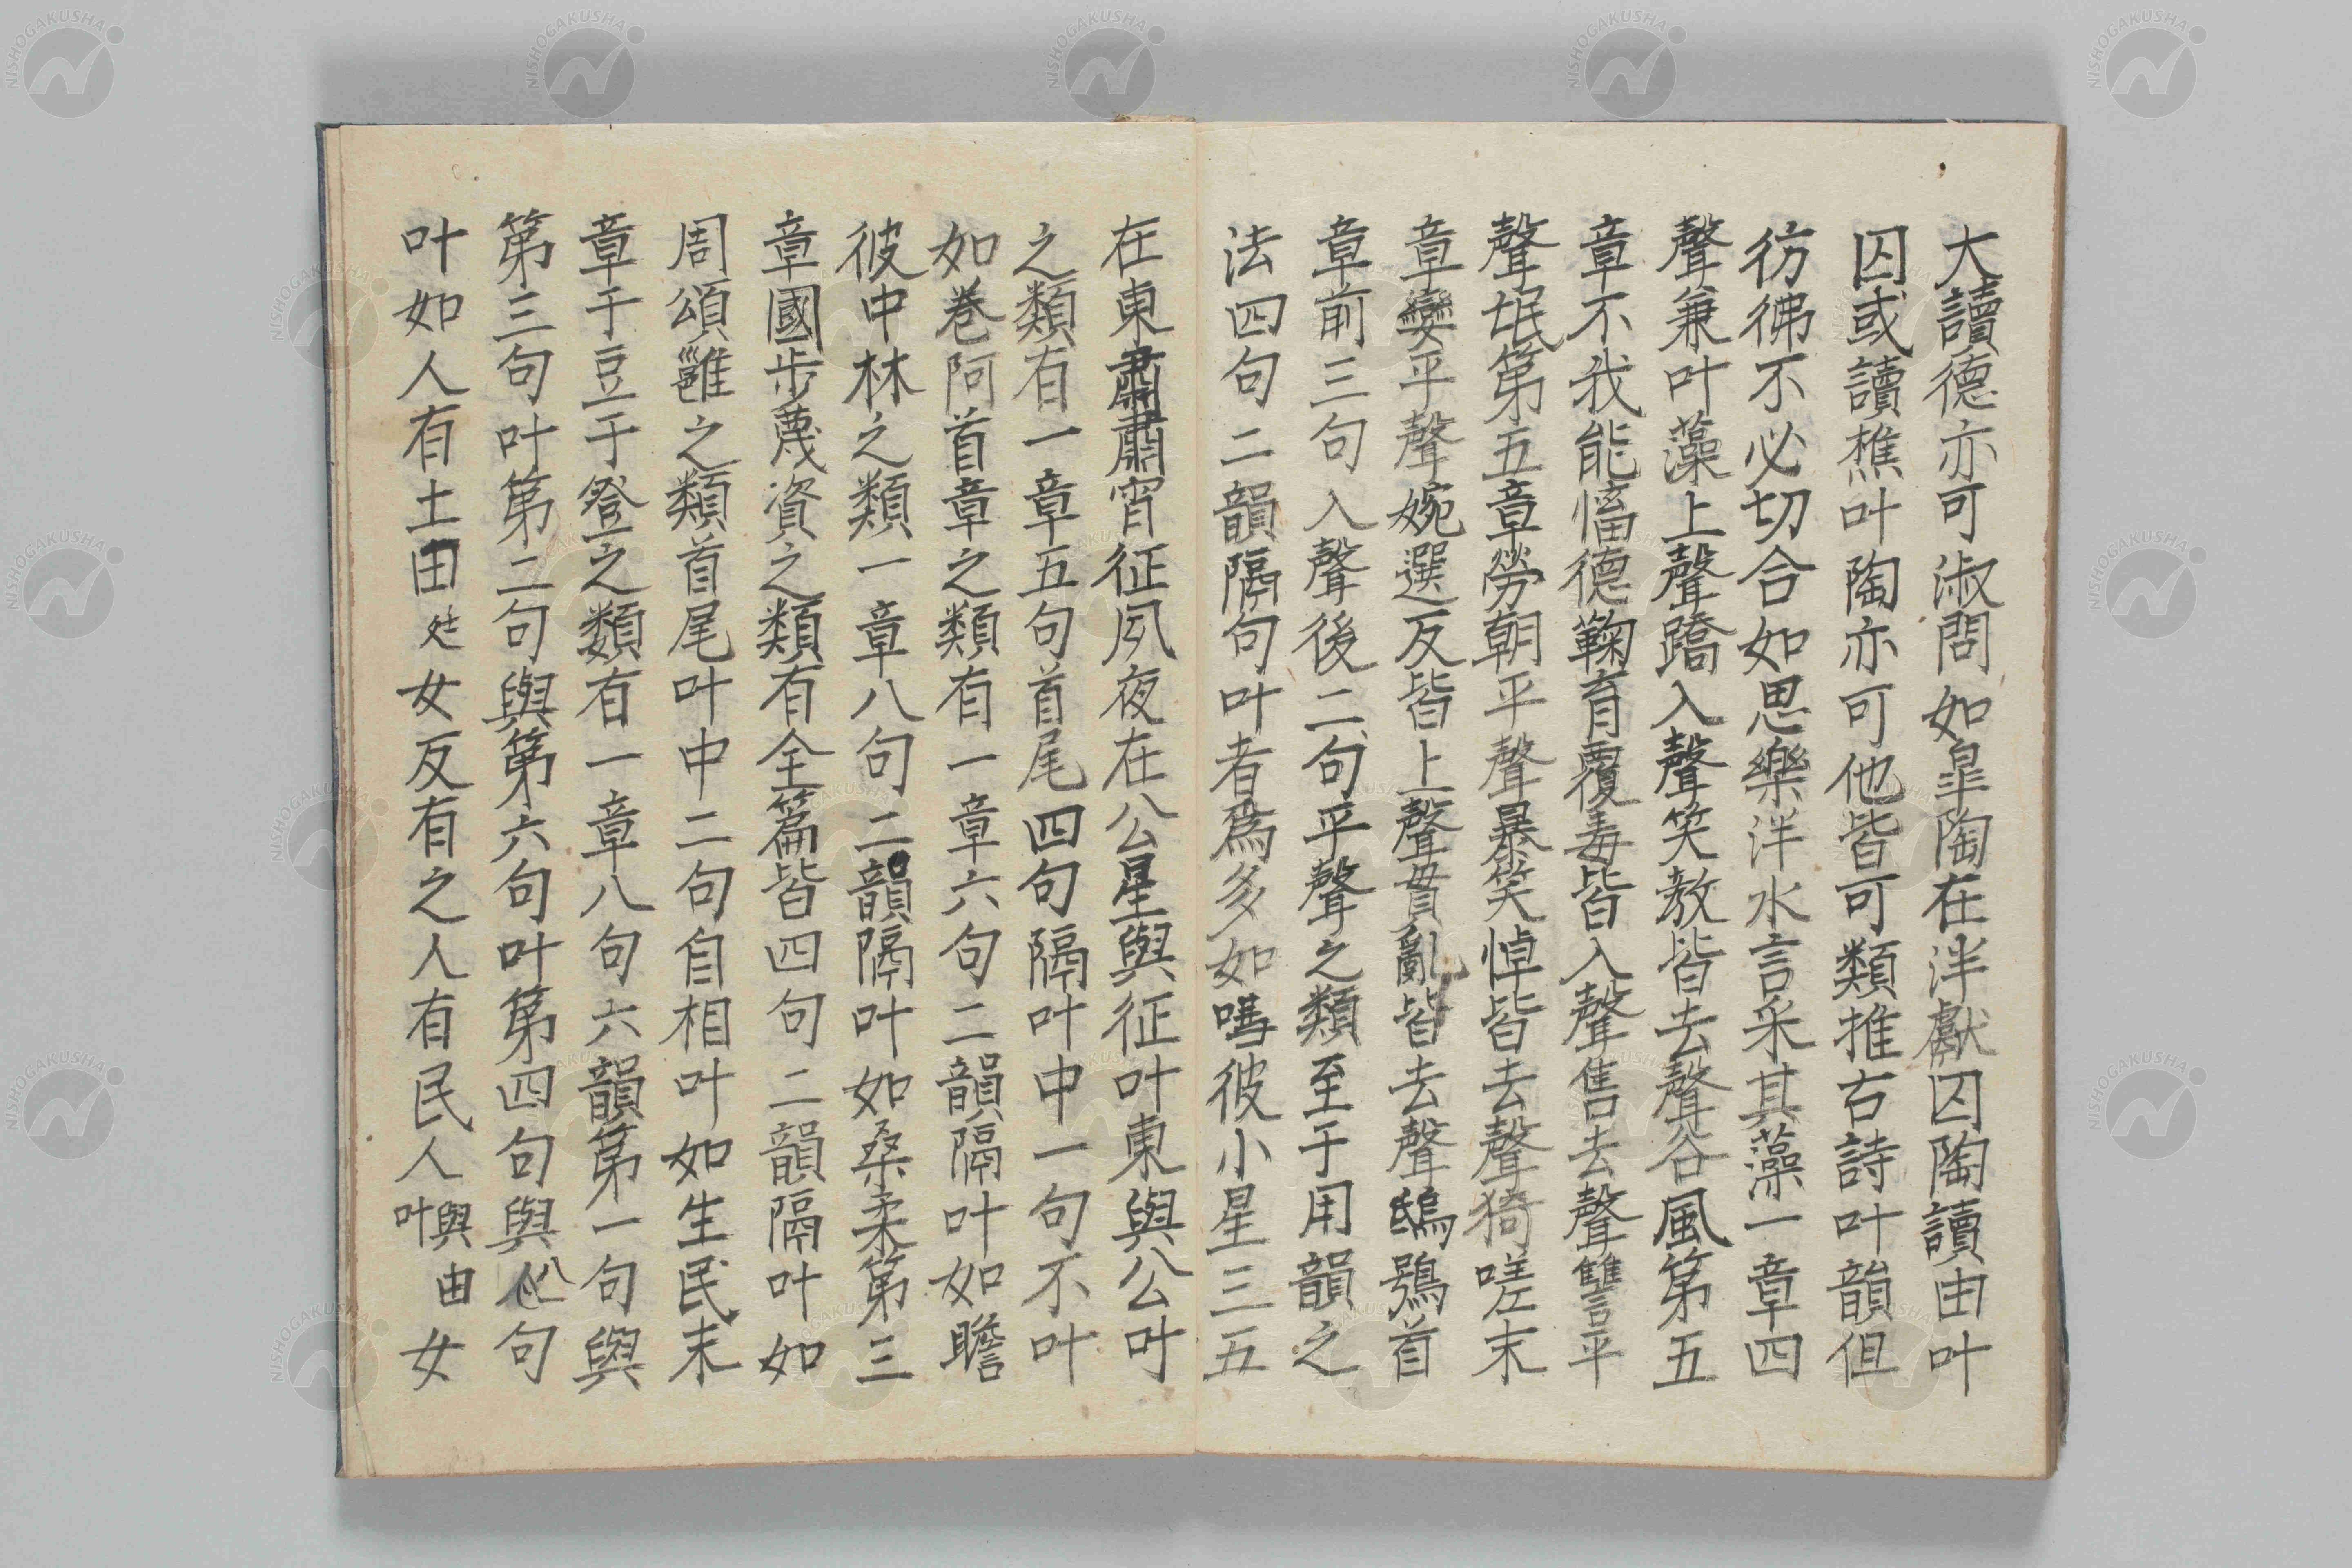 大讀德亦可淑問如皐陶在泮獻囚陶讀由叶
囚或讀樵叶陶亦可他皆可類推右詩叶韻但
彷彿不必切合如思樂泮水言采其藻一章四
聲兼叶藻上聲蹻入聲笑敖皆去聲谷風第五
章不我能慉德鞠育覆毒皆入聲售去聲讐平
聲氓第五章勞朝平聲暴笑悼皆去聲猗嗟末
章孌平聲婉選反皆上聲貫亂皆去聲鴟鴞首
章前三句入聲後二句平聲之類至于用韻之
法四句二韻隔句叶者爲多如嘒彼小星三五
在東肅肅宵征夙夜在公星與征叶東與公叶
之類有一章五句首尾四句隔叶中一句不叶
如巻阿首章之類有一章六句二韻隔叶如瞻
彼中林之類一章八句二韻隔叶如桑柔第三
章國步蔑資之類有全篇皆四句二韻隔叶如
周頌雝之類首尾叶中二句自相叶如生民末
章于豆于登之類有一章八句六韻第一句與
第三句叶第二句與第六句叶第四句與八句
叶如人有土田女反有之人有民人與由叶女